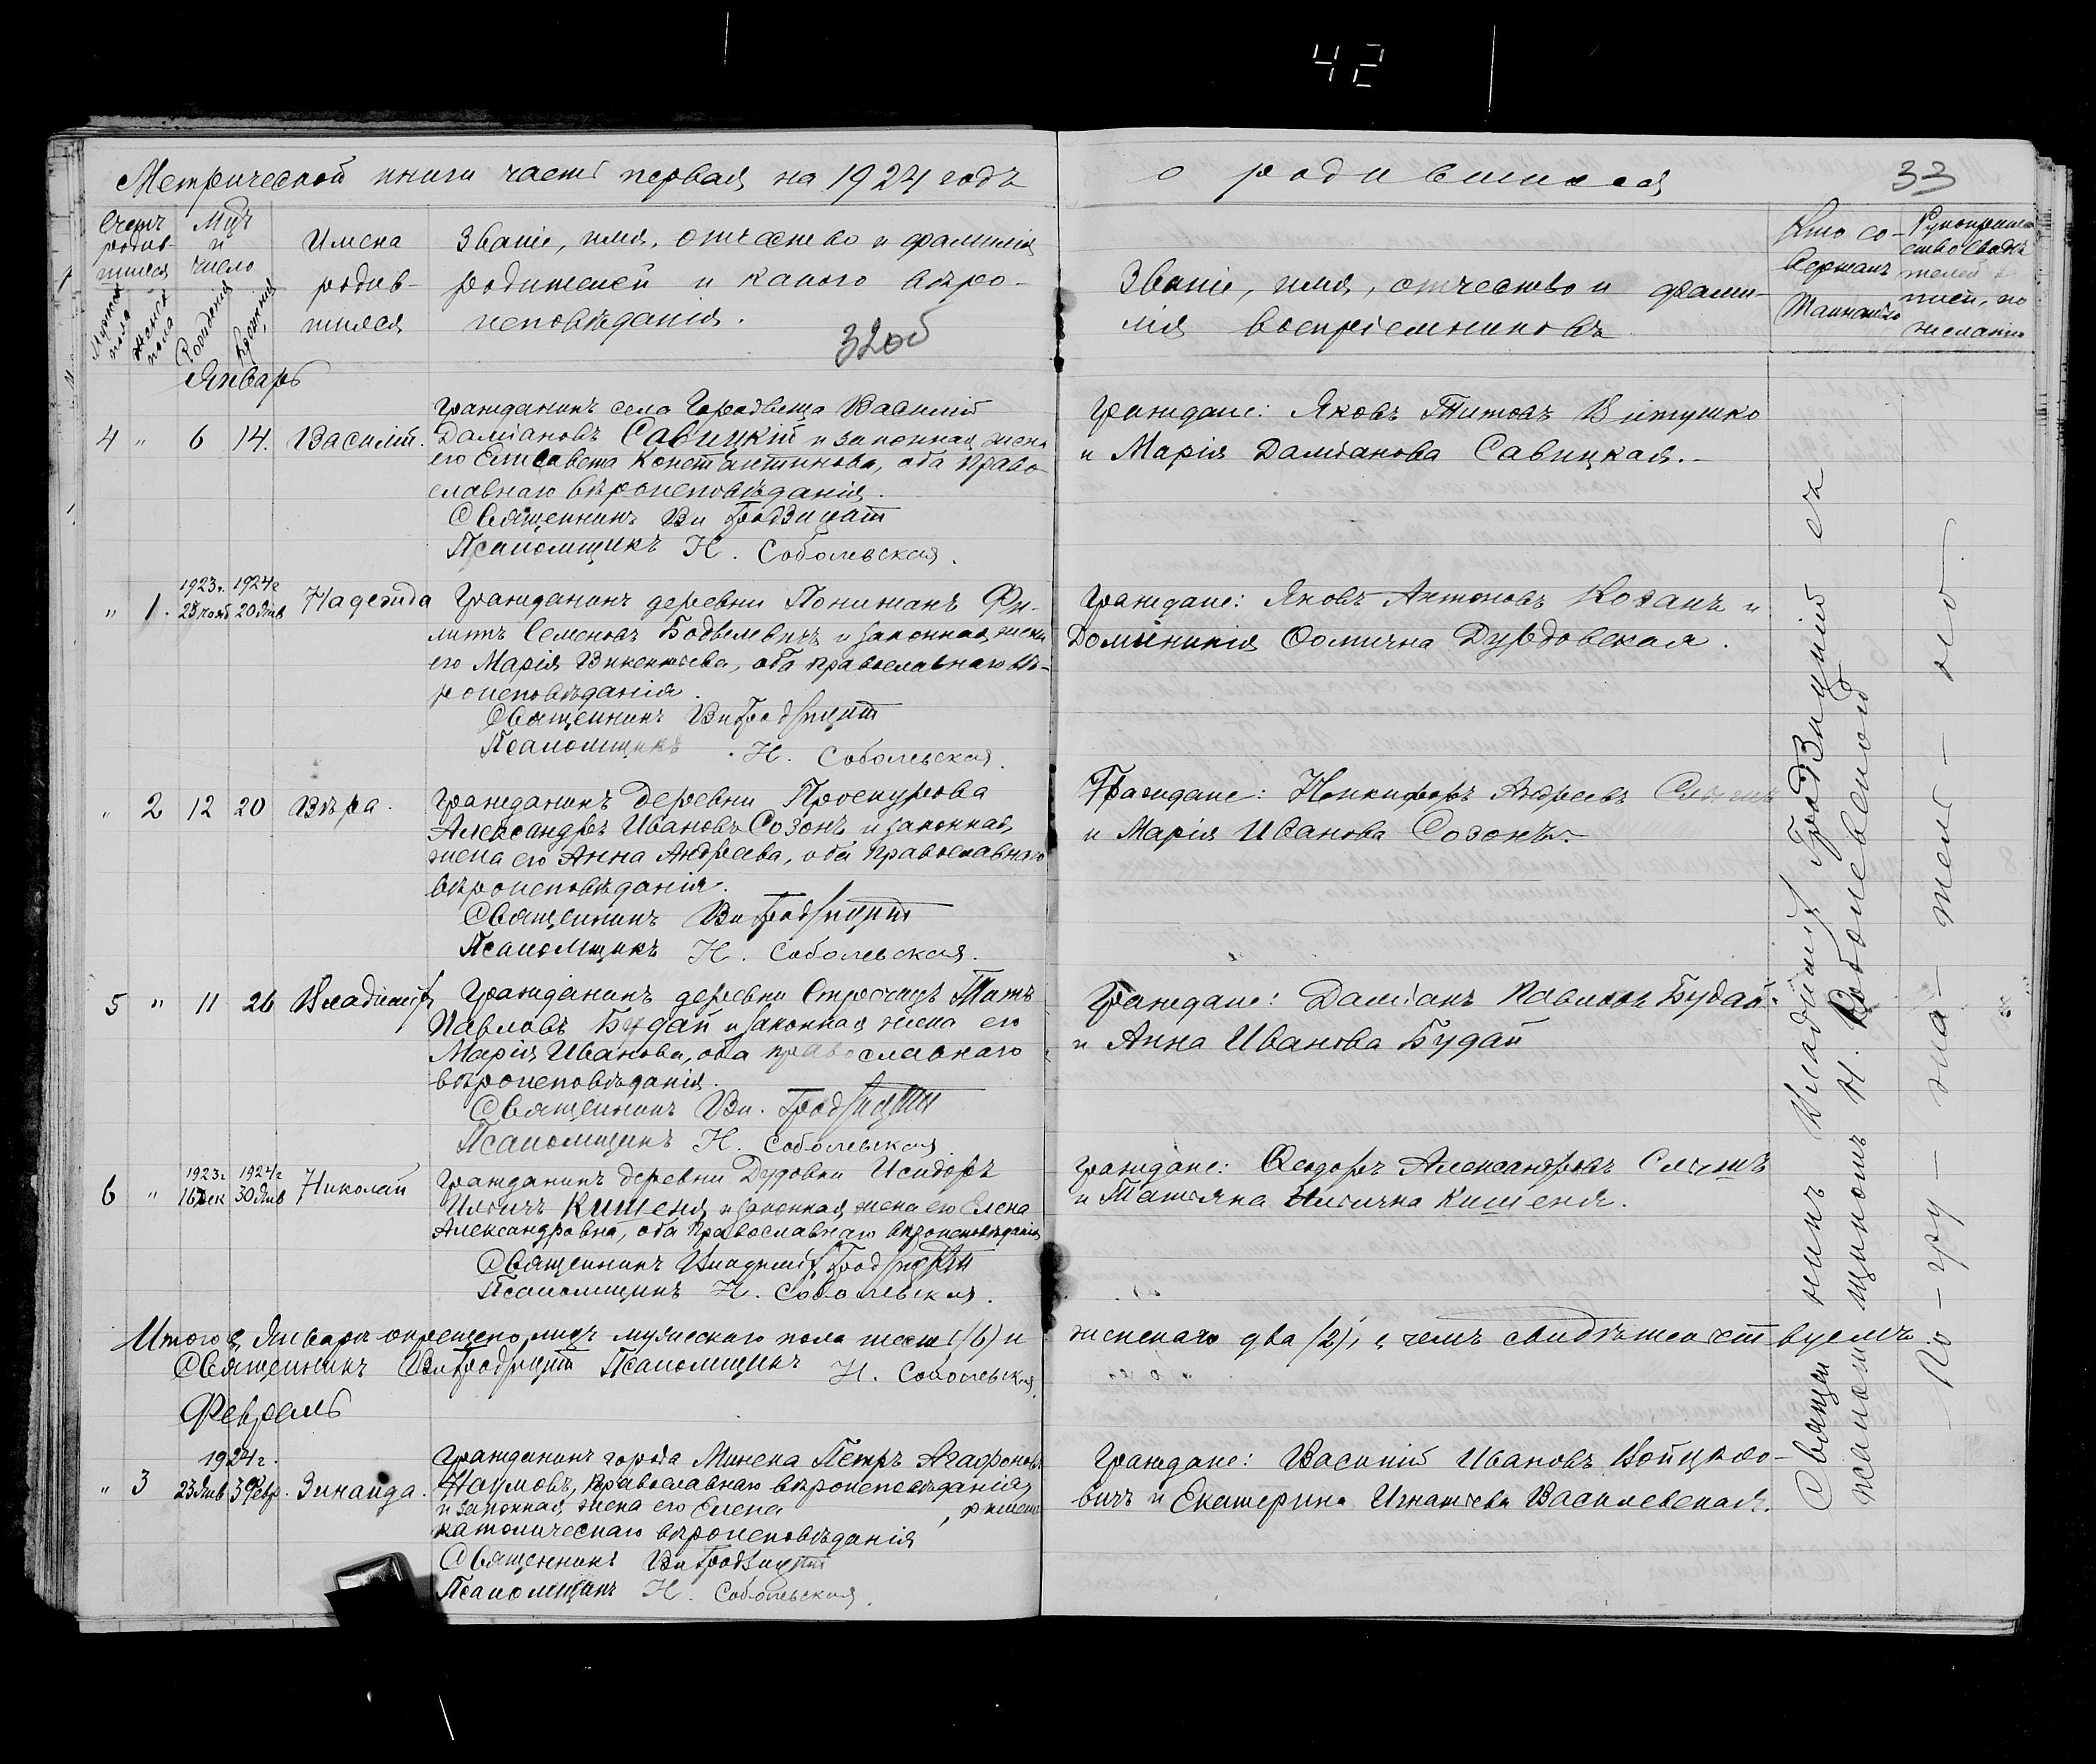 42
Метрической книги часть первая на 1924 годъ
о родившихся
33
Счетъ родив-шихся
Мужеска пола
Женска пола
Мцъ и число
Рожденія
Крещенія
Имена родив-шихся
Званіе, имя, отчество и фамилія
родителей и какого вѣро-
исповѣданія.
32об
Званіе, имя, отчество и фами-
лія воспріемниковъ
Кто со-
вершалъ
Таинство
Рукоприклад
ство свидѣ
телей за
писи, по
желанію
Январь
4 " 6 14. Василій.
Гражданинъ села Городвища Василій
Даміановъ Савицкій и законная жена
его Елисавета Константинова, оба право
славнаго вѣроисповѣданія.
Священникъ Вл Гродзицкій
Псаломщикъ Н. Соболевская.
Граждане: Яковъ Титовъ Витушко
и Марія Даміанова Савицкая.-
1923г. 1924г
" 1. 28 нояб 20 Янв Надежда
Гражданинъ деревни Понижанъ Фи-
липпъ Семеновъ Бодвелевичъ и законная жена
его Марія Викентьева, оба православнаго вѣ-
роисповѣданія.
Священникъ Вл Гродзицкій
Псаломщикъ Н. Соболевская.
Граждане: Яковъ Антоновъ Козакъ и
Доминикія Ѳомична Дурдовская.
" 2 12 20 Вѣра.
Гражданинъ деревни Проскурова
Александръ Ивановъ Созонъ и законная
жена его Анна Андреева, оба православнаго
вѣроисповѣданія.
Священникъ Вл Гродзицкій
Псаломщикъ Н. Соболевская.
Граждане: Никифоръ Андреевъ
и Марія Иванова Созонъ.-
5 " 11 26 Владиміръ
Гражданинъ деревни Строчицъ Титъ
Павловъ Будай и законная жена его
Марія Иванова, оба православнаго
вѣроисповѣданія.
Священникъ Вл. Гродзицкій
Псаломщикъ Н. Соболевская
Граждане: Даміанъ Павловъ Будай
и Анна Иванова Будай
1923г 1924г
6 " 16 Дек 30 Янв Николай
Гражданинъ деревни Дудовки Исидоръ
Ильичъ Кишеня и законная жена его Елена
Александровна, оба православнаго вѣроисповѣданія
Священникъ Владиміръ Гродзицкій
Псаломщикъ Н. Соболевская.
Граждане: Ѳеодоръ Александровъ
и Татіяна Ильична Кишеня.
Итого въ Январѣ окрещено лицъ мужескаго пола шесть (6) и женскаго два (2), о чемъ свидѣтельствуемъ
Священникъ Вл Гродзицкій Псаломщикъ Н. Соболевская.
Февраль
1924г.
" 3 23 Янв 3 Февр. Зинаида.
Гражданинъ города Минска Петръ Агафоновъ
Наумовъ, православнаго вѣроисповѣданія
и законная жена его Елена , римско
католическаго вѣроисповѣданія
Священникъ Вл Гродзицкій
Псаломщикъ Н. Соболевская.
Граждане: Василій Ивановъ Войцехо-
вичъ и Екатерина Игнатьева Василевская.
Священникъ Владиміръ Гродзицкій съ
псаломщикомъ Н. Соболевскою
Не-гра-мот-но.